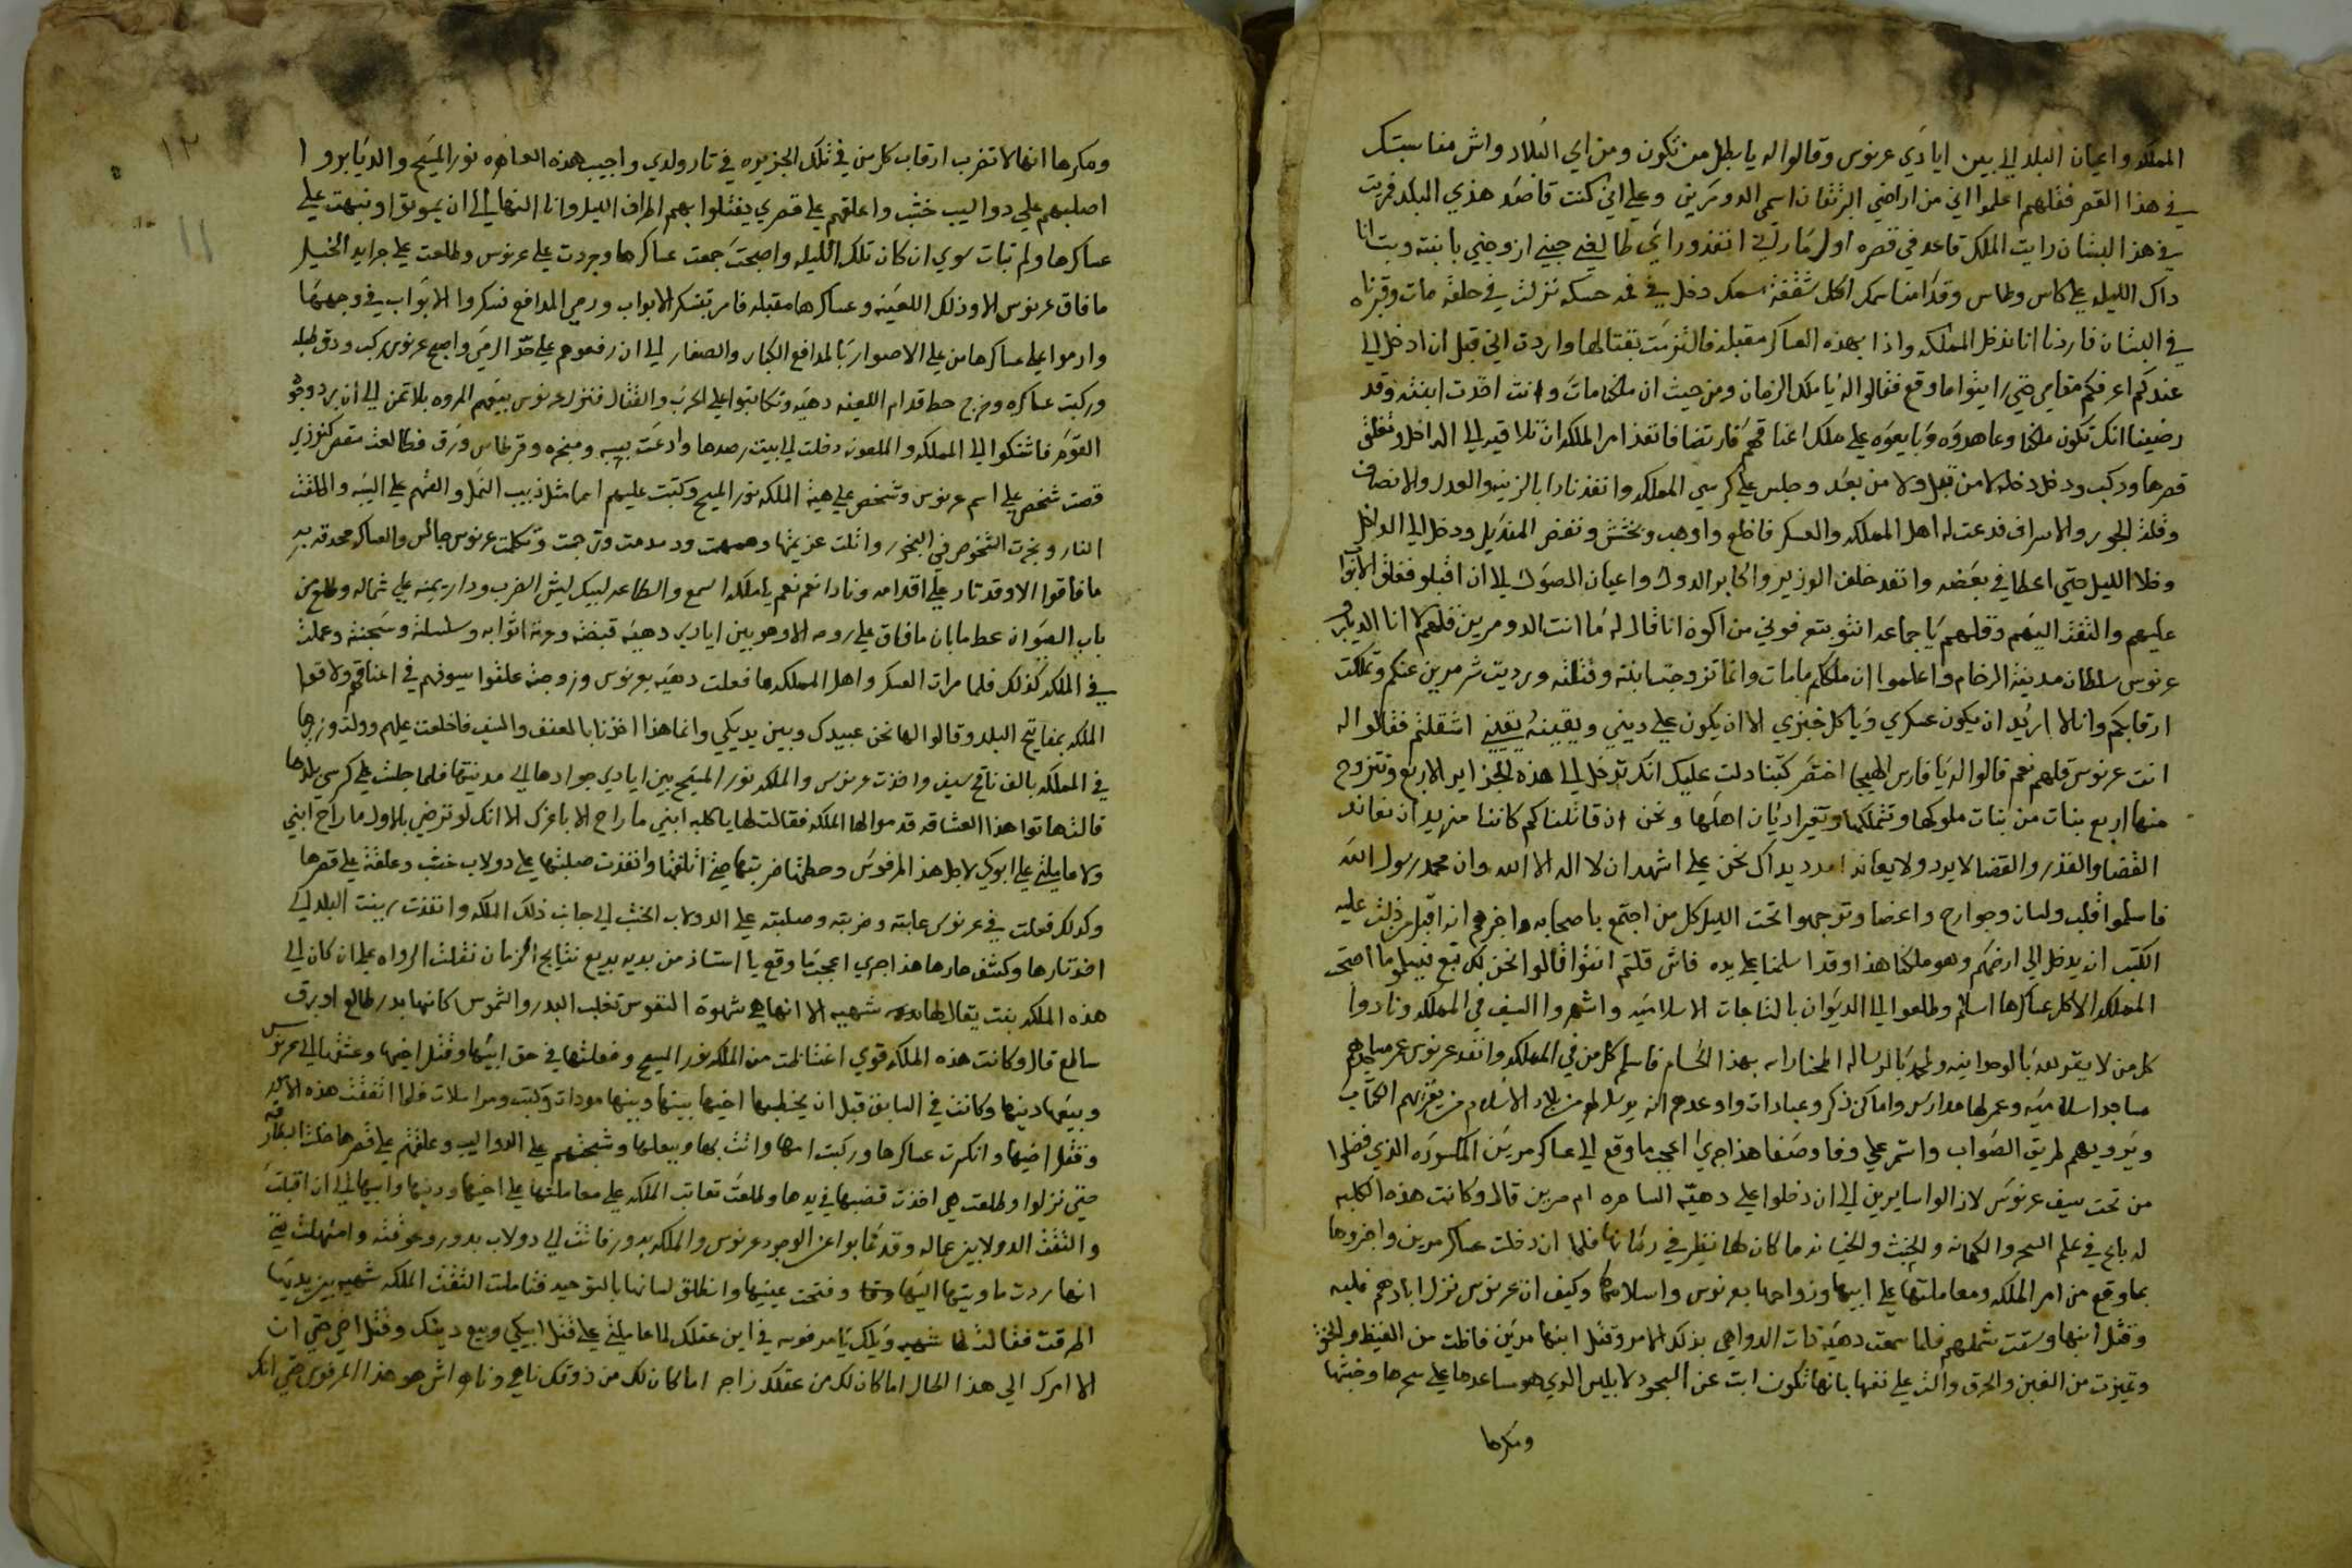 المملكه واعيان البلد الي بين ايادي عرنوس وقالوا له يا بطل من تكون ومن اي البلاد واش مناسبتك
في هذا القصر فقلهم اعلموا اني من اراضي البرتقان اسمي الدومرين وعلي اني كنت قاصد هذي البلد فريت
في هذا البستان رايت الملك قاعد في قصره اول ما راني انفذ وراي طالبني جيني ازوجني بابنته وبت انا
داك الليله علي كاس وطاس وقدامنا سمك اكل شقفة سمك دخل في فمه حسكه نزلت في حلقه مات وقبرناه
في البستان فاردنا انا ندخل المملكه واذا بهذه العساكر مقبله فالتزمت بقتالها واردت اني قبل ان ادخل الي
عندكم اعرفكم مقامي حتي رايتوا ما وقع فقالوا له يا ملك الزمان ومن حيث ان ملكنا مات وانت اخدت ابنته وقد
رضينا انك تكون ملكنا وعاهدوه وبايعوه علي ملك اعناقهم فارتضا فانفذ امر الملكه ان تلاقيه الي الداخل وتغلق
قصرها وركب ودخل دخله لا من قبل ولا من بعد وجلس علي كرسي المملكه وانفذ نادا بالزينه والعدل والانصاف
وقلة الجور والاسراف فدعت له اهل المملكه والعسكر فاخلع واوهب وبخشش ونفض المنديل ودخل الي الداخل
وخلا الليل حتي اعطا في بعضه وانفد خلف الوزير واكابر الدوله واعيان الصوله الي ان اقبلو فغلق الابواب
عليهم والتفت اليهم وقلهم يا جماعه انتو بتعرفوني من اكون انا قال له ما انت الدومرين قلهم لا انا الديابرو
عرنوس سلطان مدينة الرخام واعلموا ان ملككم ما مات وانما تزوجت بابنته وقتلته ورديت شر مرين عنكم وتملكت
ارقابكم وانا لا اريد ان يكون عسكري وياكل خبزي الا ان يكون علي ديني ويقينه يقيني اش قلتم فقالوا له
انت عرنوس قلهم نعم قالوا له يا فارس الهيجا احضر كتبنا دلت عليك انك تدخل الي هذه الجزاير الاربع وتتزوج
منها اربع بنات من بنات ملوكها وتتملكها وتغير اديان اهلها ونحن ان قاتلناكم كاننا منريد ان نعاند
القضا والقدر والقضا لا يرد ولا يعاند امدد يداك نحن علي اشهد ان لا اله الا الله وان محمد رسول الله
فاسلموا قلب ولسان وجوارح واعضا وتوجهوا تحت الليل كل من اجتمع باصحابه واخبرهم انه اقبل من دلت عليه
الكتب انه يدخل الي ارضكم وهو ملكنا هذا وقد اسلمنا علي يده فاش قلتم انتوا قالوا نحن لكم تبع فيه وما اصبحت
المملكه الا كل عساكرها اسلام وطلعوا الي الديوان بالتاجات الاسلاميه واشهروا السيف في المملكه ونادوا
كل من لا يقر لله بالوحدانيه ولمحمد بالرساله المختار اله بهذا الحسام فاسلم كل من في المملكه وانفد عرنوس عمر
مساجد اسلاميه وعمر لها مدارس واماكن ذكر وعبادات واوعدهم انه يرسل لهم من بلاد الاسلام من يقريهم الكتاب
ويرويهم طريق الصواب واستمر علي وفا وصفا هذا جري اعجب ما وقع الي عساكر مرين المكسوره الذي فضلوا
من تحت سيف عرنوس لا زالوا سايرين الي ان دخلوا علي دهيه الساحره ام مرين قال وكانت هذه الكلبه
له باع في علم السحر والكهانه والخبث والخيانه ما كان لها نظير في زمانها فلما ان دخلت عساكر مرين واخبروها
بما وقع من امر الملكه ومعاملتها علي ابيها وزواجها بعرنوس واسلامها وكيف ان عرنوس نزل ابادهم غلبه
وقتل ابنها وشتت شملهم فلما سمعت دهيه ذات الدواهي بذلك الامر وقتل ابنها مرين فاظت من الغيظ والخنق
وتميزت من الغبن والحرق والت علي نفسها بانها تكون ابت عن السجود لابليس الدي هو مساعدها علي سحرها وخبثها
ومكرها
ومكرها انها لا تضرب ارقاب كل من في تلك الجزيره في تار ولدي واجيب هذه العاهره نور المسيح والديابروا
اصلبهم علي دواليب خشب واعلقهم علي قصري يفتلوا بهم اطراف الليل وانا النهار الي ان يموتوا ونبهت علي
عساكرها ولم تبات سوي ان كان تلك الليله واصبحت جمعت عساكرها وجردت علي عرنوس وطلعت علي جرايد الخيل
ما فاق عرنوس الا وذلك اللعينه وعساكرها مقبله فامر بتسكر الابواب ورمي المدافع فسكروا الابواب في وجهها
وارموا علي عساكرها من علي الاصوار بالمدافع الكبار والصغار الي ان رفعوهم علي حد الرمي واصبح عرنوس ركب ودق طبله
وركبت عساكره وخرج حط قدام اللعينه دهيه وتكاتبوا علي الحرب والقتال فنزل عرنوس بينهم المروه بلا تمن الي ان بردوجو
القوم فاشتكوا الي المملكه والملعونه دخلت الي بيت رصدها وادعت بيبسه ومبخره وقرطاس ورق فطالعت مقص كنوزي
قصت شخص علي اسم عرنوس وشخص علي هية الملكه نور المسيح وكتبت عليهم اسما مثل دبيب النمل والقتهم علي اليسه واطلقت
النار وبخرت الشخوص في البخور واتلت عزيمتها وهمهمت ودمدمت وترجمت وتكلمت عرنوس جالس والعساكر محدقه به
ما فاقوا الا وقد تار علي اقدامه ونادا نعم نعم يا ملكه السمع والطاعه لبيك ليش الضرب ودار يمينه علي شماله وطلع من
باب الصوان عطا ما بان ما فاق علي روحه الا وهو بين ايادي دهيه قبضته وعرته اثوابه وسلسلته وسجنته وعملت
في الملكه كذلك فلما مرات العسكر واهل المملكه ما فعلت دهيه بعرنوس وزوجته علقوا سيوفهم في اعناقهم ولاقوا
الملكه بمفاتيح البلد وقالوا لها نحن عبيدك وبين يديكي وانما هذا اخذنا بالعنف والسيف فاخلعت عليهم وولت وزيرها
في المملكه بالف تاتي سيف واخذت عرنوس والملكه نور المسيح بين ايادي جوادها الي مدينتها فلما جلست علي كرسي بلدها
قالت هاتوا هذا العشاقه قدموا لها الملكه فقالت لها يا كلبه ابني ما راح الا باغرك الا انك لو ترضي بالاول ما راح ابني
ولا عاملتي علي ابوكي لاجل هذا المرفوس وحطتها ضربتها حتي اتلفتها وانفذت صلبتها علي دولاب خشب وعلقته علي قصرها
وكدلك فعلت في عرنوس عاتبته وضربته وصلبته علي الدولاب الخشب الي جانب ذلك الملكه وانفذت زينت البلد الي
اخذ تارها وكشف عارها هذا جري اعجب ما وقع يا استاذ من بديه بديع نتايج الزمان نقلت الرواه علي ان كان الي
هذه الملكه بنت يقال لها شهيه الا انها هي شهوة النفوس تغلب البدر والشموس كانها بدر طالع او برق
ساطع قال وكانت هذه الملكه قوي اغتاظت من الملكه نور المسيح وفعلتها في حق ابيها وقتل اخيها وعشقها الي عرنوس
وبيعها دينها وكانت في السابق قبل ان يخطبها اخيها بينها وبينها مودات وكتب ومراسلات فلما اتفقت هذه الامور
وقتل اخيها وانكسرت عساكرها وركبت امها واتت بها وببعلها وشبحتهم علي الدواليب وعلقتهم علي قصرها
حتي نزلوا وطلعت هي اخذت قضيبها في يدها وطلعت تعاتب الملكه علي معاملتها علي اخيها ودينها وابيها الي ان اقبلت
والتفت الدولابين عماله وقد غابوا عن الوجود عرنوس والملكه بدور فاتت الي دولاب بدور وعوقته وامتهلت حتي
انها ردت ماويتها اليها وفتحت عينيها وانطلق لسانها بالتوحيد فتاملت التفتت الملكه شهيه بين يديها
اطرقت فقالت لها شهيه ويلك يا مرفوسه في اين عقلك لما عاملتي علي قتل ابيكي وبيع دينك وقتل اخي حتي ان
الامر الي هذا الحال اما كان لك من عقلك زاجر اما كان لك من ذوقك ناهي وناهر اش هو هذا المرفوس حتي انك